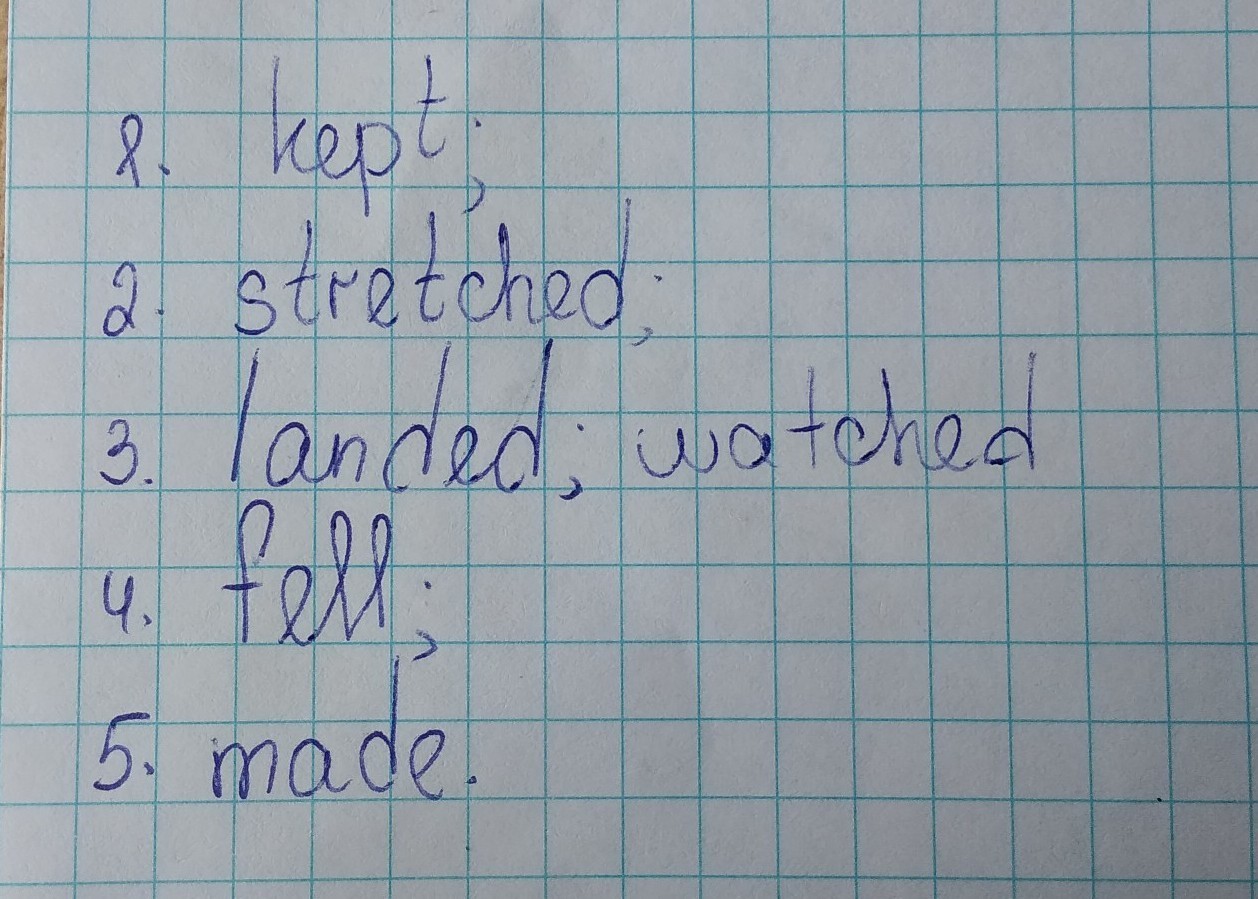 1. kept;
2. stretched;
3. landed; watched
4. fell;
5. made.